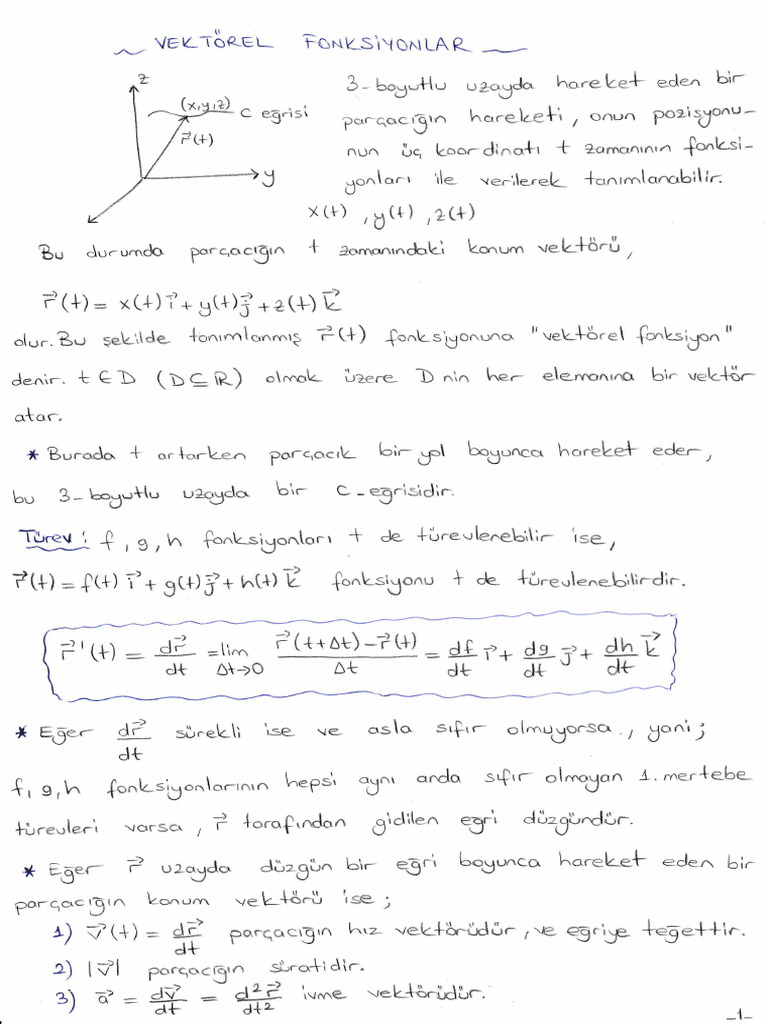 VEKTÖREL FONKSİYONLAR
z
(x,y,z)
C eğrisi
r⃗(t)
y
3-boyutlu uzayda hareket eden bir
parçacığın hareketi, onun pozisyonu-
nun üç koordinatı t zamanının fonksi-
yonları ile verilerek tanımlanabilir.
x(t), y(t), z(t)
Bu durumda parçacığın t zamanındaki konum vektörü,
r⃗(t) = x(t) i⃗ + y(t) j⃗ + z(t) k⃗
olur. Bu şekilde tanımlanmış r⃗(t) fonksiyonuna "vektörel fonksiyon"
denir. t ∈ D (D ⊆ ℝ) olmak üzere D nin her elemanına bir vektör
atar.
* Burada t artarken parçacık bir yol boyunca hareket eder,
bu 3-boyutlu uzayda bir C-eğrisidir.
Türev: f, g, h fonksiyonları t de türevlenebilir ise,
r⃗(t) = f(t) i⃗ + g(t) j⃗ + h(t) k⃗ fonksiyonu t de türevlenebilirdir.
r⃗'(t) = dr⃗/dt = lim Δt→0 (r⃗(t+Δt) − r⃗(t))/Δt = df/dt i⃗ + dg/dt j⃗ + dh/dt k⃗
* Eğer dr⃗/dt sürekli ise ve asla sıfır olmuyorsa., yani;
f, g, h fonksiyonlarının hepsi aynı anda sıfır olmayan 1. mertebe
türevleri varsa, r⃗ tarafından gidilen eğri düzgündür.
* Eğer r⃗ uzayda düzgün bir eğri boyunca hareket eden bir
parçacığın konum vektörü ise;
1) v⃗(t) = dr⃗/dt parçacığın hız vektörüdür, ve eğriye teğettir.
2) |v⃗| parçacığın süratidir.
3) a⃗ = dv⃗/dt = d²r⃗/dt² ivme vektörüdür.
-1-